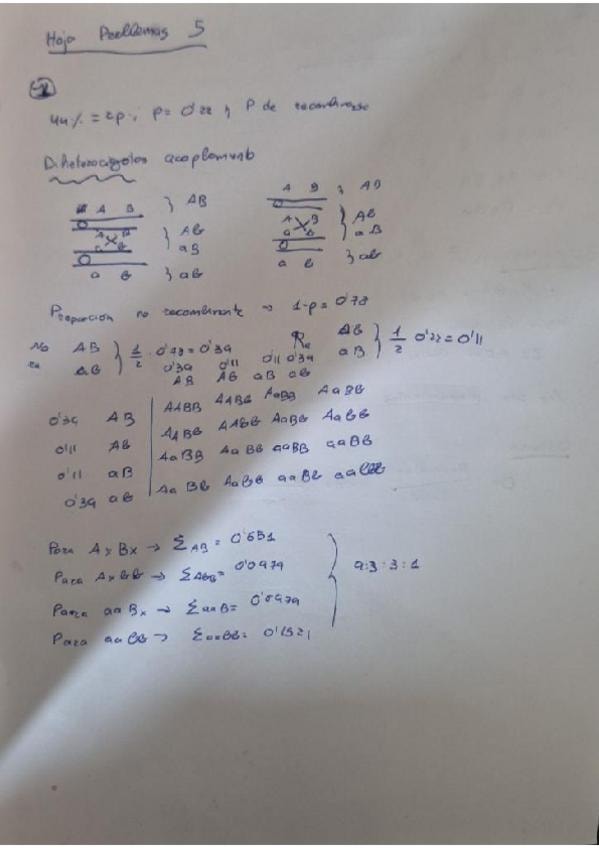 Hoja Problemas 5
44% = 2p ; p = 0'22 , P de recombinasao
Diheterocigotos acoplamiento
A B } AB
A B } Ab
a b } aB
a b } ab
A B } AB
A B } Ab
a b } aB
a b } ab
Proporción no recombinante → 1-p = 0'78
No re AB ab } 1/2 · 0'78 = 0'39
Re Ab aB } 1/2 0'22 = 0'11
0'39 0'11 0'11 0'39
AB Ab aB ab
0'39 AB AABB AABb AaBB AaBb
0'11 Ab AABb AAbb AaBb Aabb
0'11 aB AaBB AaBb aaBB aaBb
0'39 ab AaBb Aabb aaBb aabb
Para AxBx → ΣAB = 0'651
Para Axbb → ΣAbb = 0'0979
Para aaBx → ΣaaB = 0'0979
Para aabb → Σaabb = 0'1521
9:3:3:1